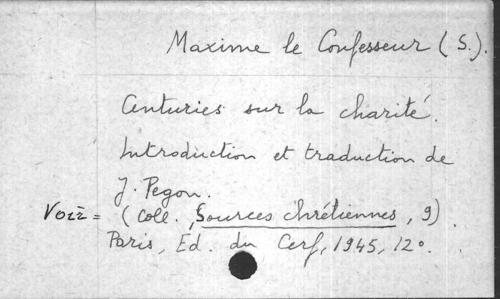 Maxime le Confesseur (S.).
Centuries sur la charité.
Introduction et traduction de
J. Pegon.
Voir = (coll. Sources chrétiennes, 9)
Paris, Ed. du Cerf, 1945, 12°.